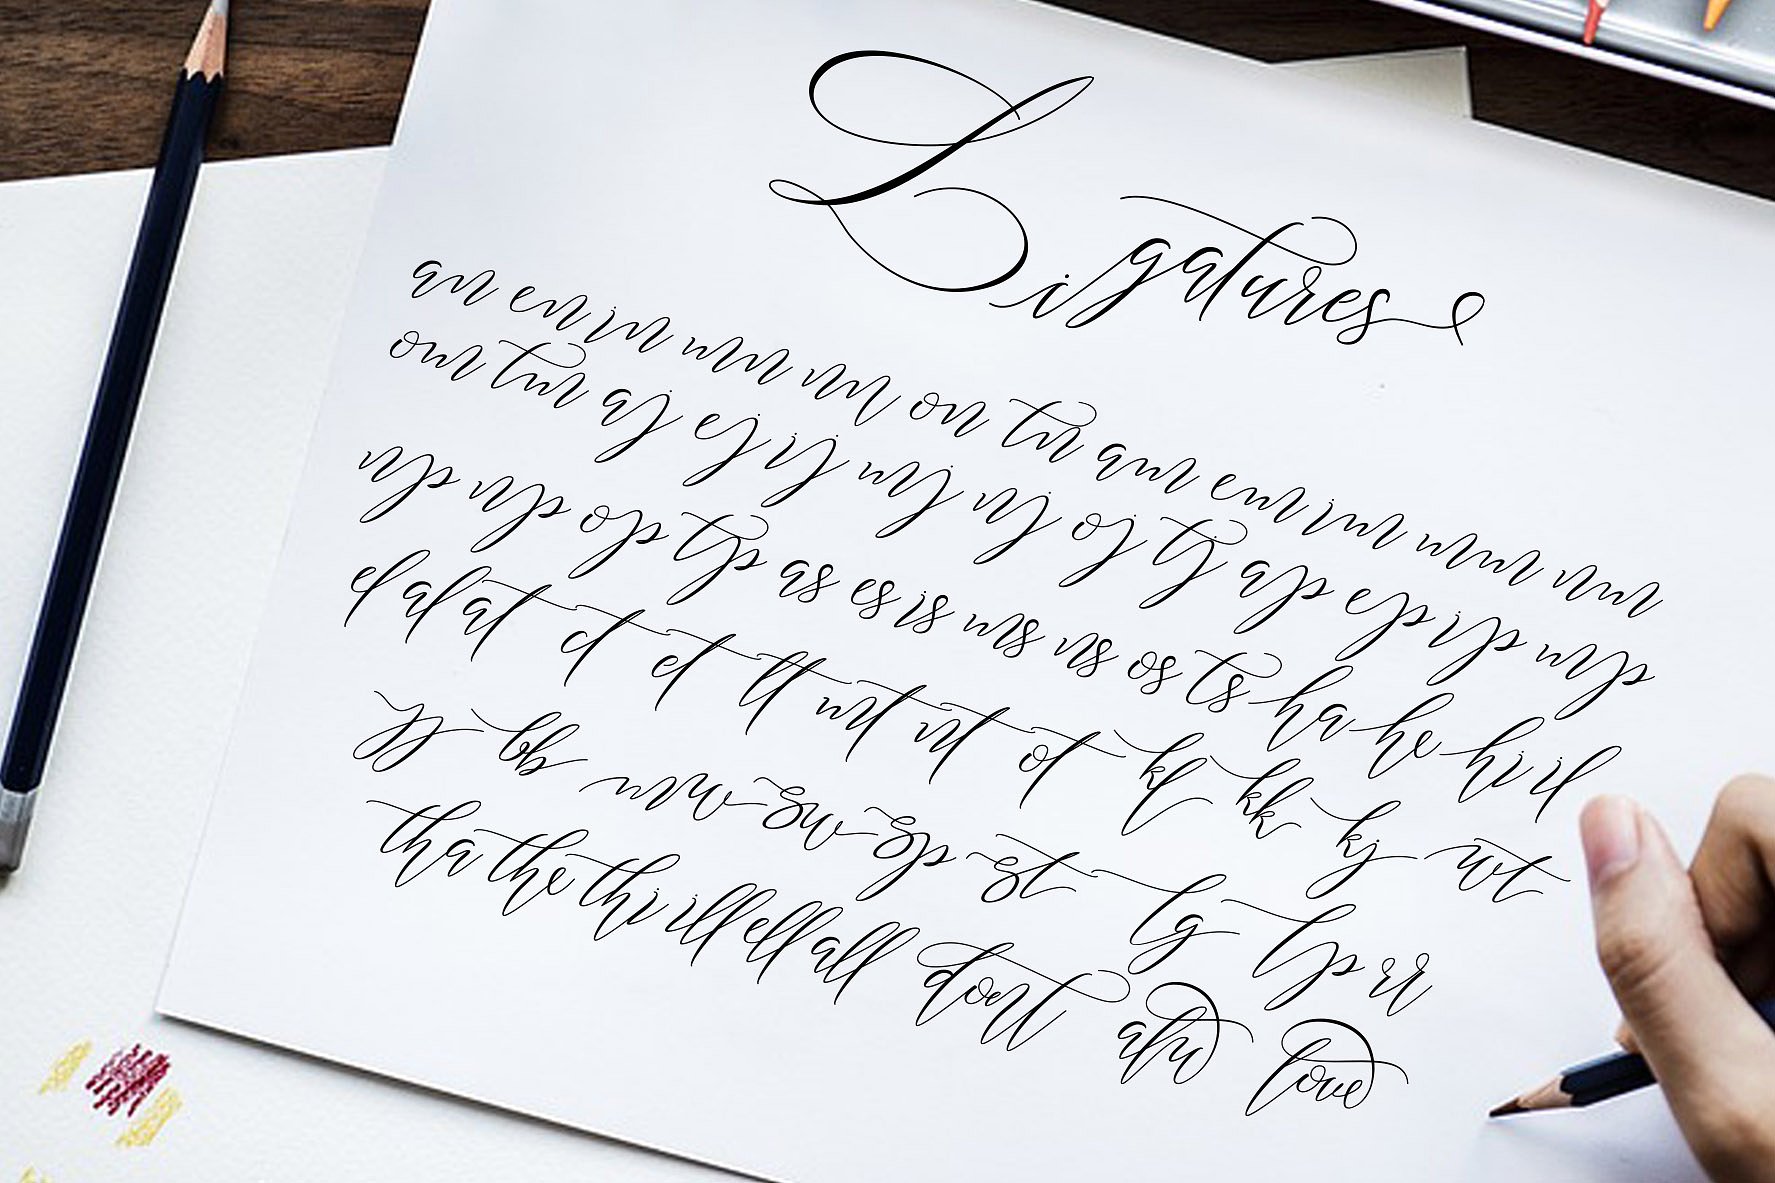 Ligatures
an en in mn nn on tn am em im mm nm
om tm aj ej ij mj nj oj tj ap ep ip mp
np op tp as es is ms ns os ts ha he hi il
el al at et tt mt nt ot kl kk kj wt
yy bb sw sp st tg tp rr
tha the thi ill ell all dont and love